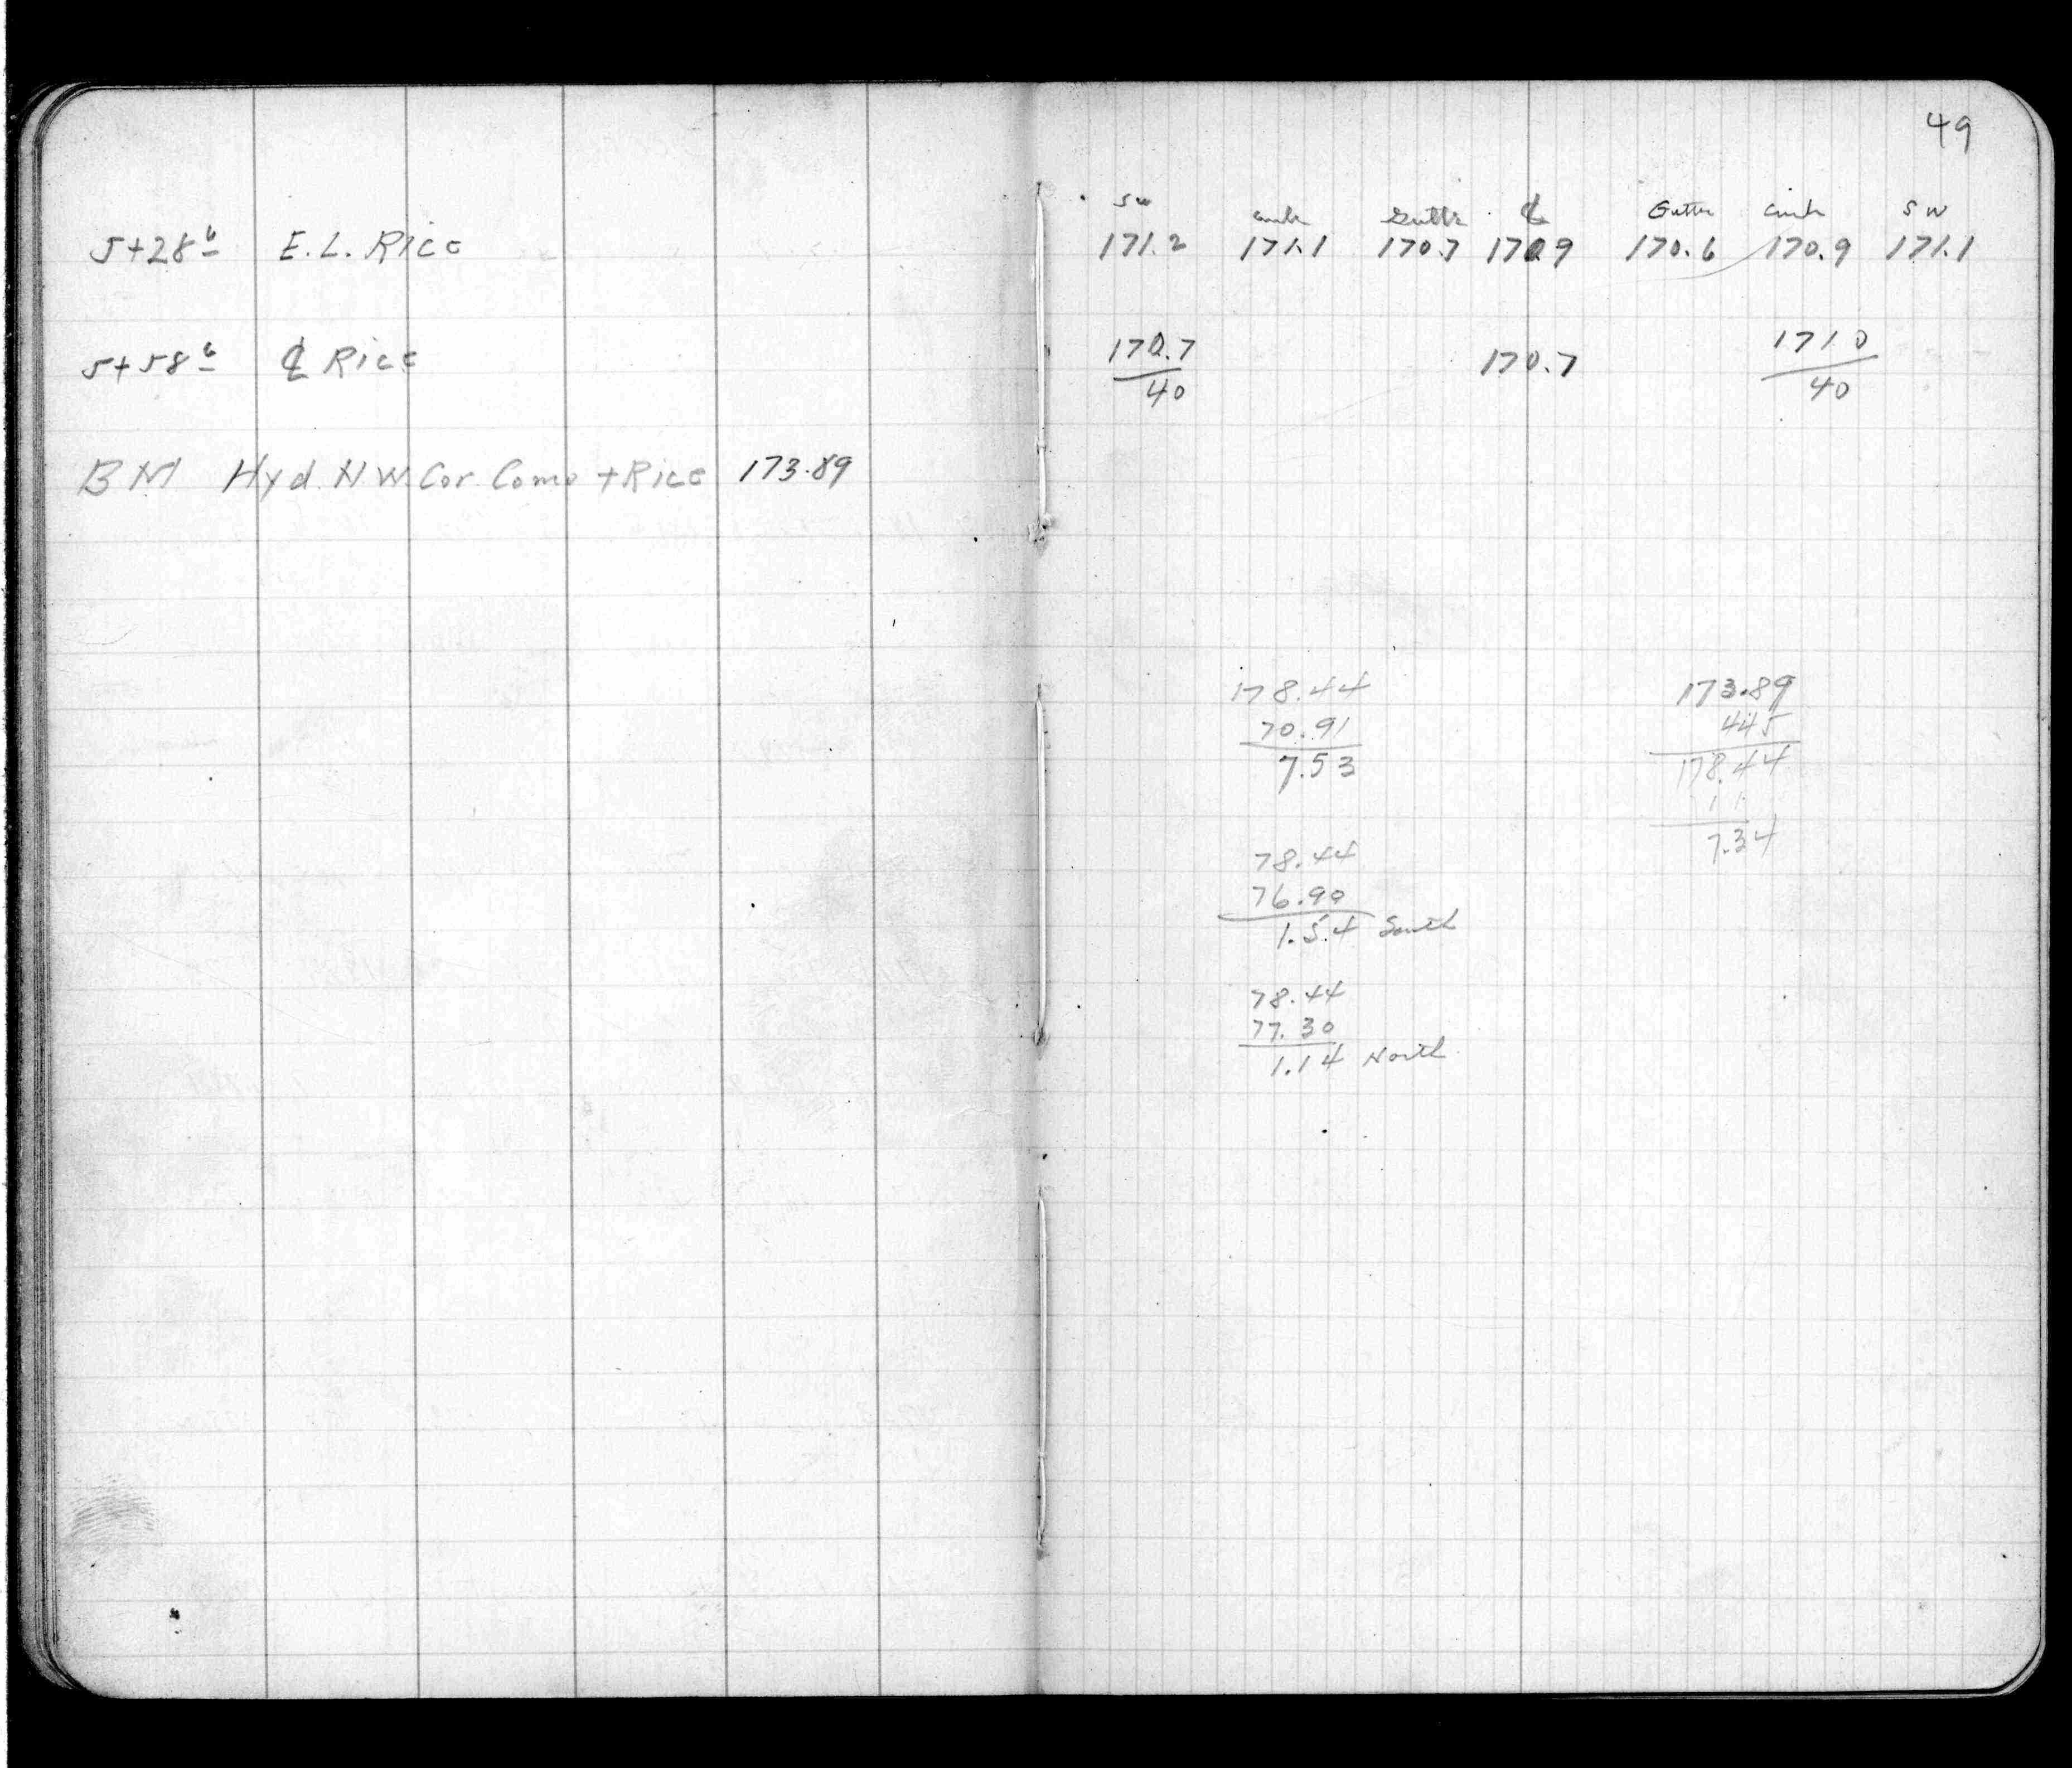 49
SW curb Gutter ℄ Gutter Curb SW
5+28⁶ E.L. Rice 171.2 171.1 170.7 170.9 170.6 170.9 171.1
5+58⁶ ℄ Rice 170.7 170.7 171 0
40 40
BM Hyd. N.W. Cor. Como + Rice 173.89
178.44
70.91
7.53
78.44
76.90
1.54 South
78.44
77.30
1.14 North
173.89
445
178.44
1 1
7.34